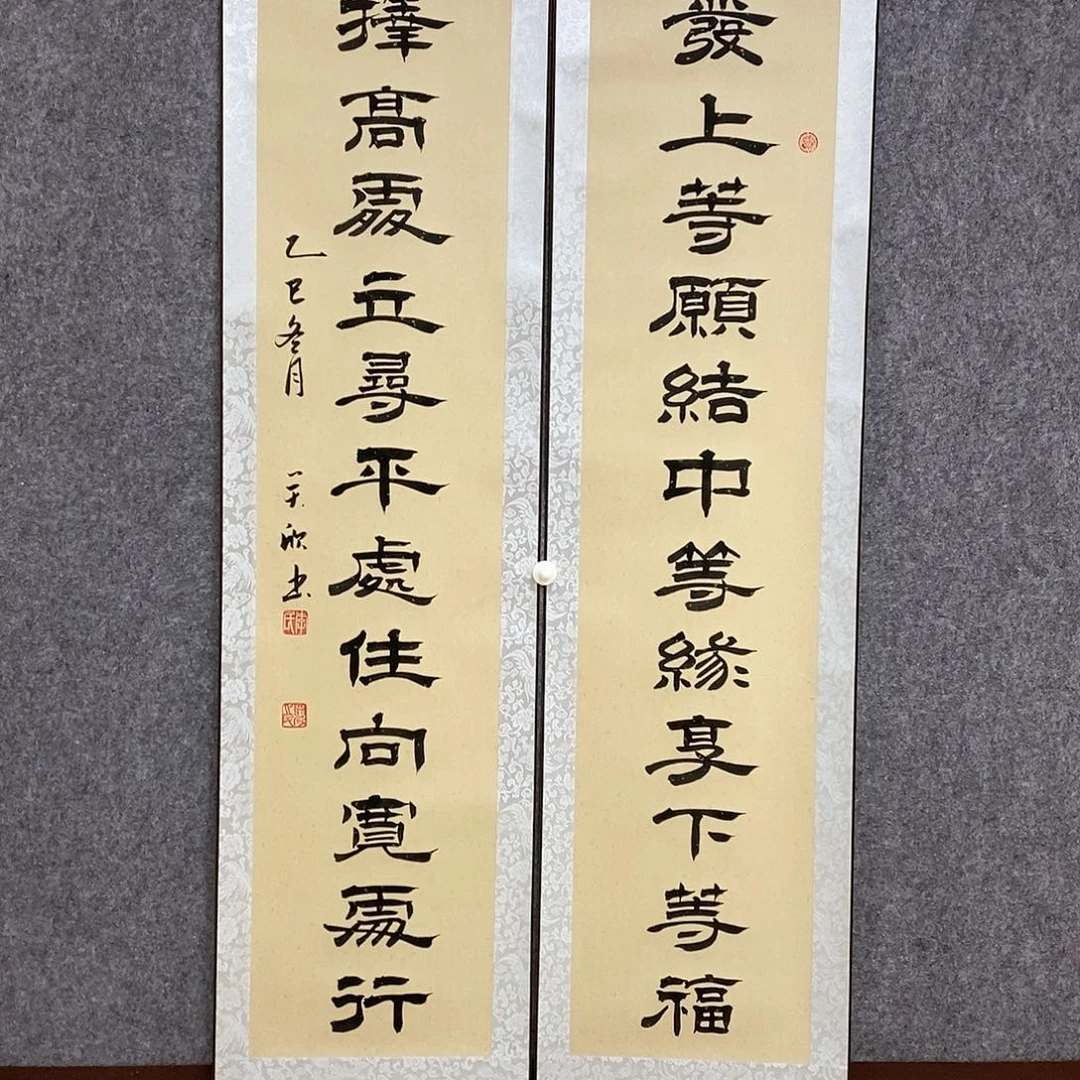 發上等願結中等緣享下等福
擇高處立尋平處住向寬處行
乙巳冬月
欣书